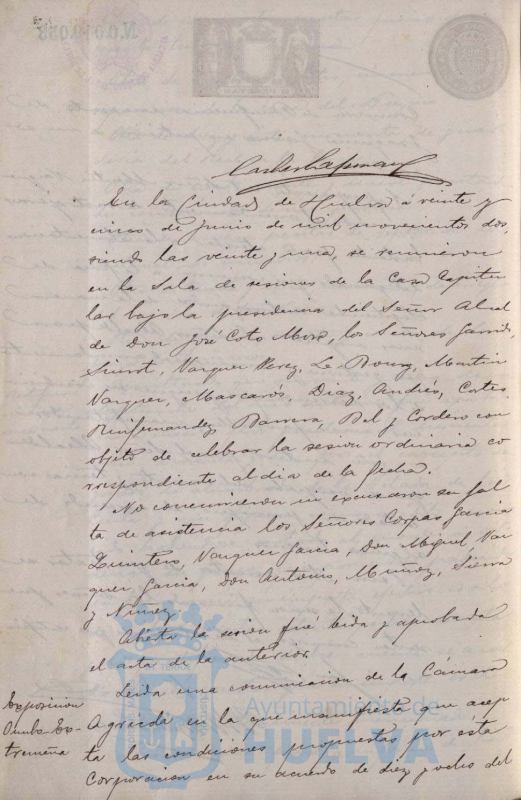 En la Ciudad de Huelva á veinte y
cinco de Junio de mil novecientos dos,
siendo las veinte y una, se reunieron
en la Sala de sesiones de la Casa Capitu
lar bajo la presidencia del Señor Alcal
de Don José Coto Mora, los Señores Garrido,
Siurot, Vazquez Perez, Le Bourg, Martin
Vazquez, Mascarós, Diaz, Andrés, Cortes,
Ruifernandez, Barrera, Bel y Cordero con
objeto de celebrar la sesion ordinaria co
rrespondiente al dia de la fecha.
No concurrieron ni excusaron su fal
ta de asistencia los Señores Corpas, Garcia
Quintero, Vazquez Garcia, Don Miguel, Vaz
quez Garcia, Don Antonio, Muñoz, Sierra
y Nuñez.
Abierta la sesion fué leida y aprobada
el acta de la anterior.
Leida una comunicacion de la Cámara
Exposicion
Onubo-Ex-
tremeña
Agricola en la que manifiesta que acep
ta las condiciones propuestas por esta
Corporacion en su acuerdo de diez y ocho del
Ayuntamiento de
HUELVA